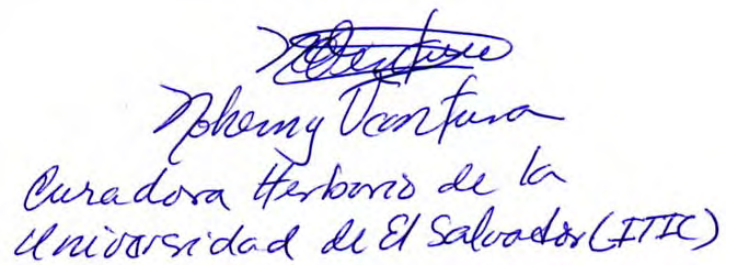 Nohemy Ventura
Curadora Herbario de la
Universidad de El Salvador (ITIC)